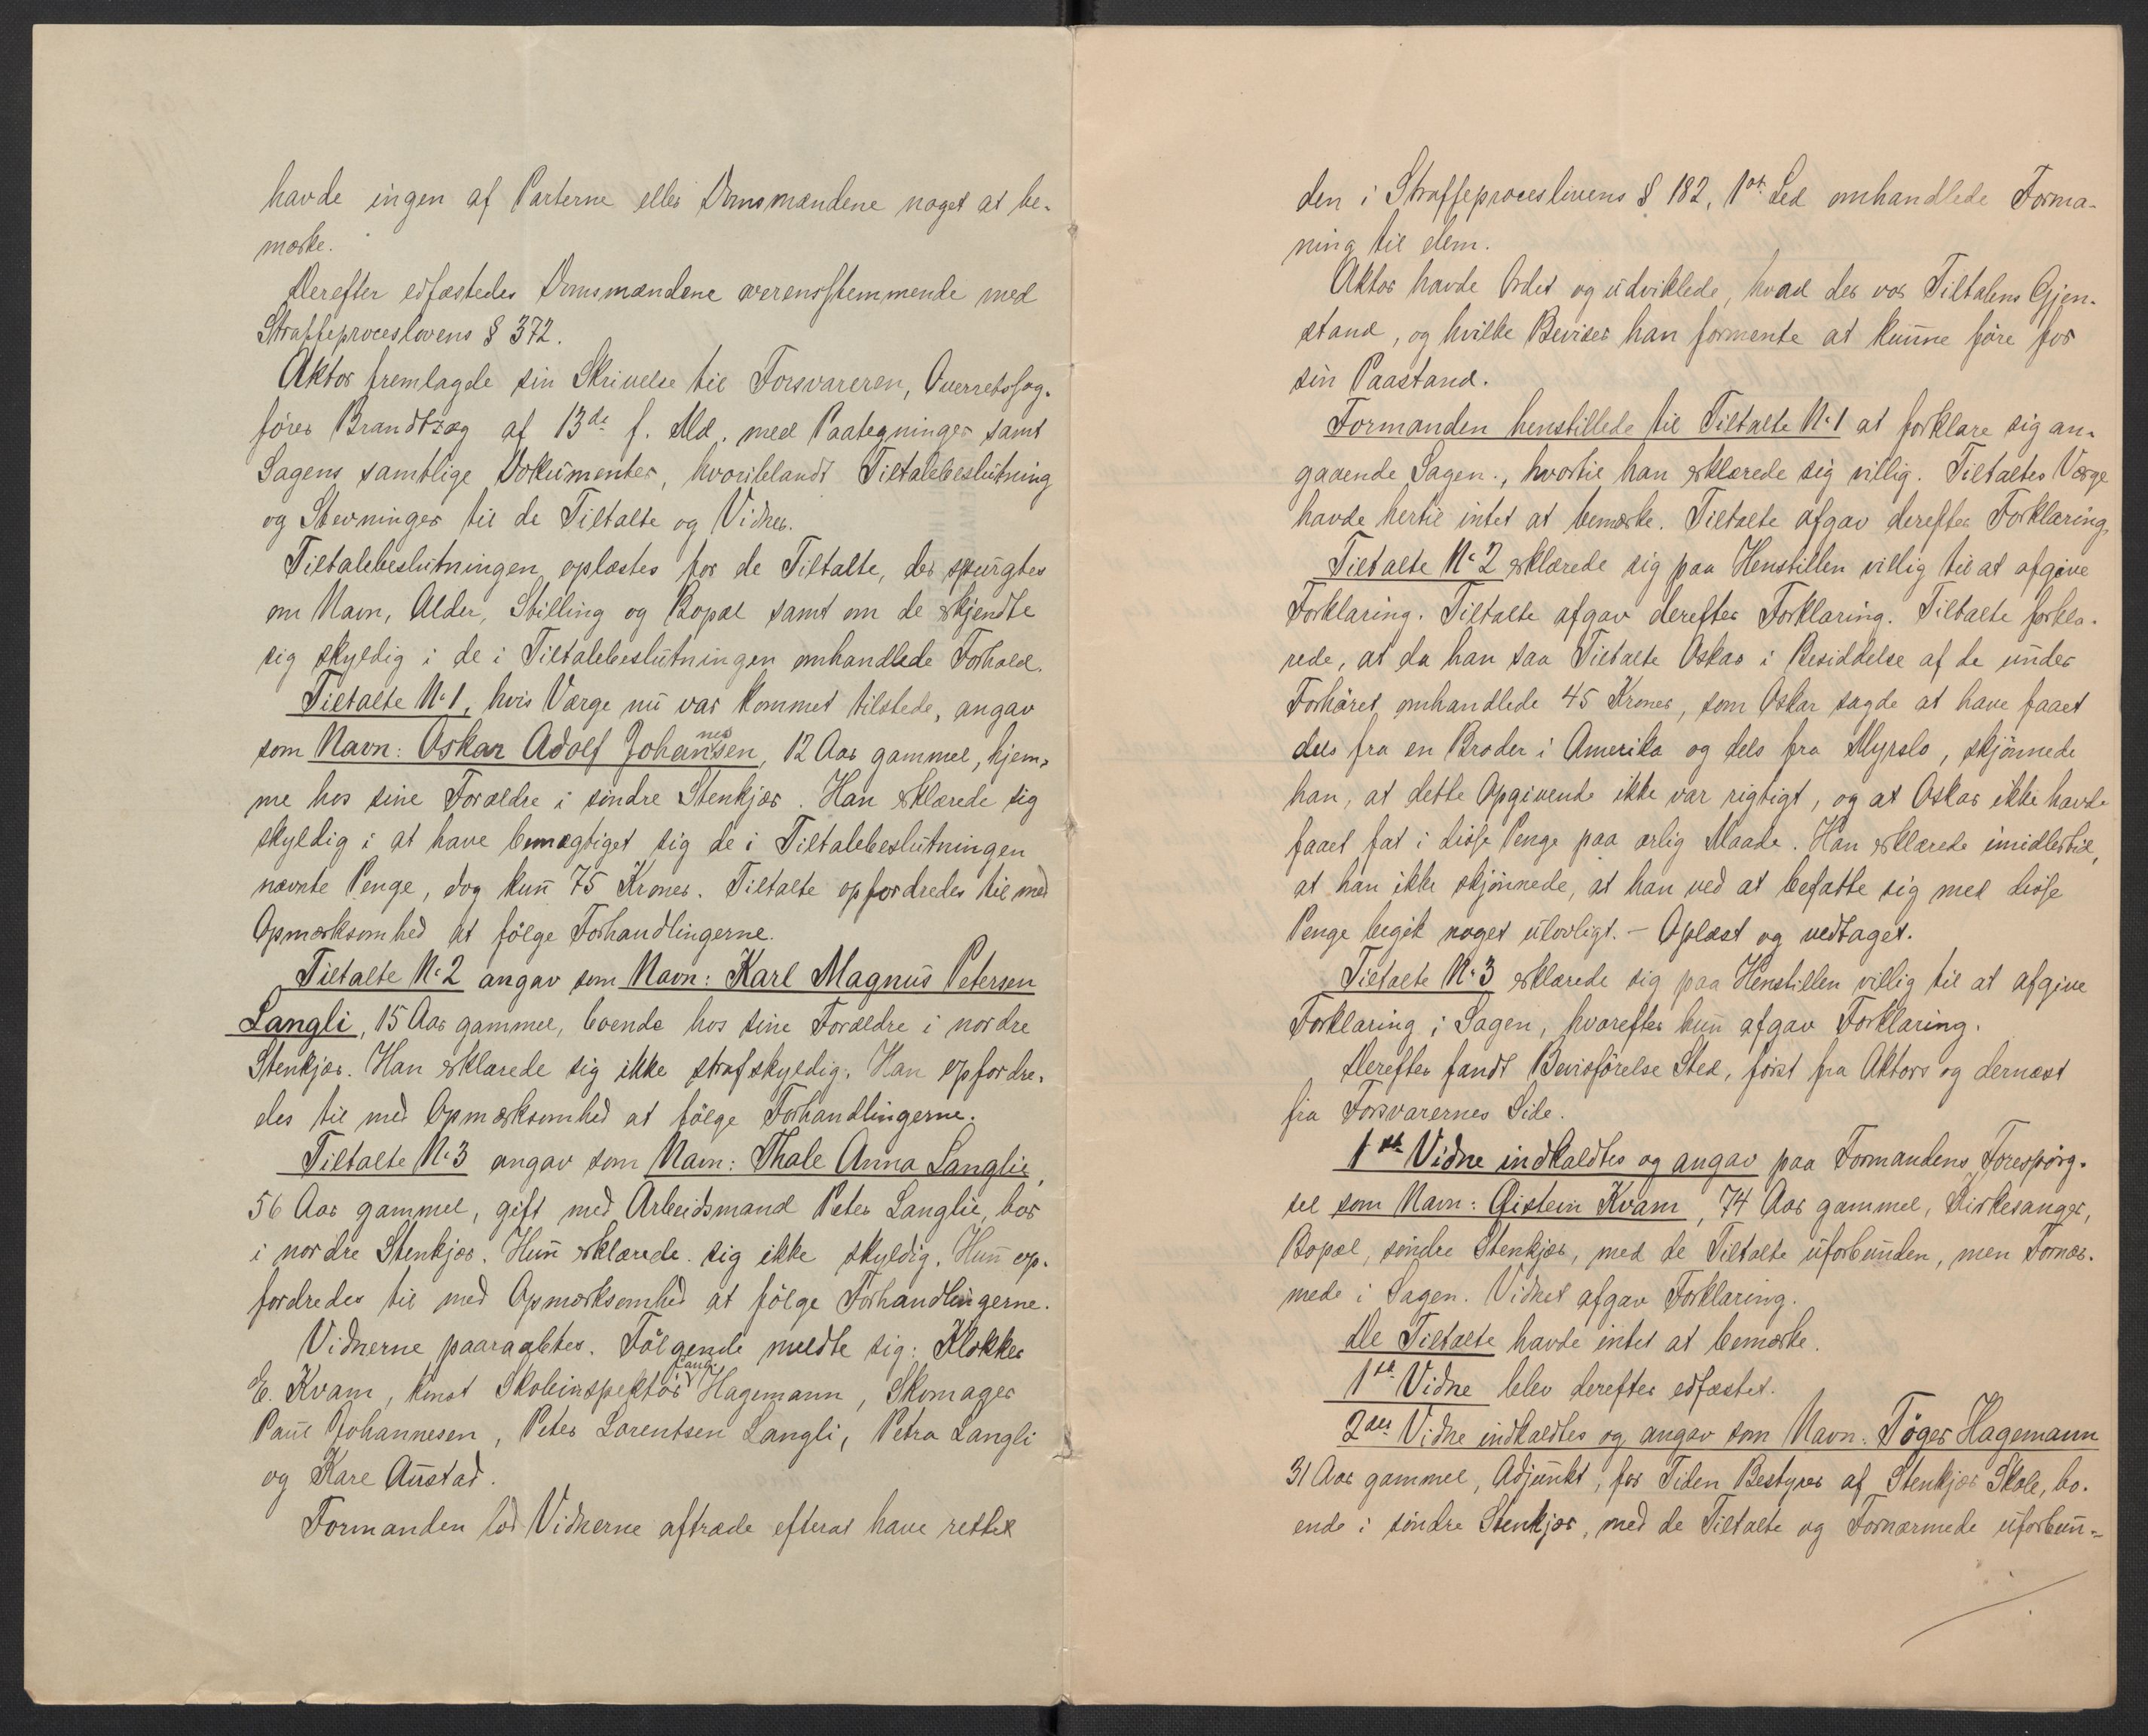 havde ingen af Parterne eller Domsmændene noget at be-
mærke.
Derefter edfæstedes Domsmændene overensstemmende med
Straffeproceslovens § 372.
Aktor fremlagde sin Skrivelse til Forsvareren, Overretssag-
fører Brandtzæg af 13de f. Md. med Paategninger samt
Sagens samtlige Dokumenter, hvoriblandt Tiltalebeslutning
og Stevninger til de Tiltalte og Vidner.
Tiltalebeslutningen oplæstes for de Tiltalte, der spurgtes
om Navn, Alder, Stilling og Bopæl samt om de erkjendte
sig skyldig i de i Tiltalebeslutningen omhandlede Forhold.
Tiltalte No 1, hvis Værge nu var kommet tilstede, angav
som Navn: Oskar Adolf Johannessen, 12 Aar gammel, hjem-
me hos sine Forældre i søndre Stenkjær. Han erklærede sig
skyldig i at have bemægtiget sig de i Tiltalebeslutningen
nævnte Penge, dog kun 75 Kroner. Tiltalte opfordredes til med
Opmærksomhed at følge Forhandlingerne.
Tiltalte No 2 angav som Navn: Karl Magnus Petersen
Langli, 15 Aar gammel, boende hos sine Forældre i nordre
Stenkjær. Han erklærede sig ikke strafskyldig. Han opfordre-
des til med Opmærksomhed at følge Forhandlingerne.
Tiltalte No 3 angav som Navn: Thale Anna Langlie,
56 Aar gammel, gift med Arbeidsmand Peter Langlie, bor
i nordre Stenkjær. Hun erklærede sig ikke skyldig. Hun op-
fordredes til med Opmærksomhed at følge Forhandlingerne.
Vidnerne paaraabtes. Følgende meldte sig: Klokker
E. Kvam, konst Skoleinspektør Hagemann, Skomager
Paul Johannesen, Peter Lorentsen Langli, Petra Langli
og Kare Austad.
Formanden lod Vidnerne aftræde efterat have rettet
den i Straffeproceslovens § 182, 1ste Led omhandlede Forma-
ning til dem.
Aktor havde Ordet og udviklede, hvad der var Tiltalens Gjen-
stand, og hvilke Beviser han formente at kunne føre for
sin Paastand.
Formanden henstillede til Tiltalte No 1 at forklare sig an-
gaaende Sagen, hvortil han erklærede sig villig. Tiltaltes Værge
havde hertil intet at bemærke. Tiltalte afgav derefter Forklaring.
Tiltalte No 2 erklærede sig paa Henstillen villig til at afgive
Forklaring. Tiltalte afgav derefter Forklaring. Tiltalte forkla-
rede, at da han saa Tiltalte Oskar i Besiddelse af de under
Forhøret omhandlede 45 Kroner, som Oskar sagde at have faaet
dels fra en Broder i Amerika og dels fra Myrslo, skjønnede
han, at dette Opgivende ikke var rigtigt, og at Oskar ikke havde
faaet fat i disse Penge paa ærlig Maade. Han erklærede imidlertid,
at han ikke skjønnede, at han ved at befatte sig med disse
Penge begik noget ulovligt. - Oplæst og vedtaget.
Tiltalte No 3 erklærede sig paa Henstillen villig til at afgive
Forklaring i Sagen, hvorefter hun afgav Forklaring.
Derefter fandt Bevisførelse Sted, først fra Aktors og dernæst
fra Forsvarernes Side.
1ste Vidne indkaldtes og angav paa Formandens Forespørg-
sel som Navn: Øistein Kvam, 74 Aar gammel, Kirkesanger,
Bopæl, søndre Stenkjær, med de Tiltalte uforbunden, men Fornær-
mede i Sagen. Vidnet afgav Forklaring.
De Tiltalte havde intet at bemærke.
1ste Vidne blev derefter edfæstet.
2det Vidne indkaldtes og angav som Navn: Tøger Hagemann
31 Aar gammel, Adjunkt, for Tiden Bestyrer af Stenkjær Skole, bo-
ende i søndre Stenkjær, med de Tiltalte og Fornærmede uforbun-